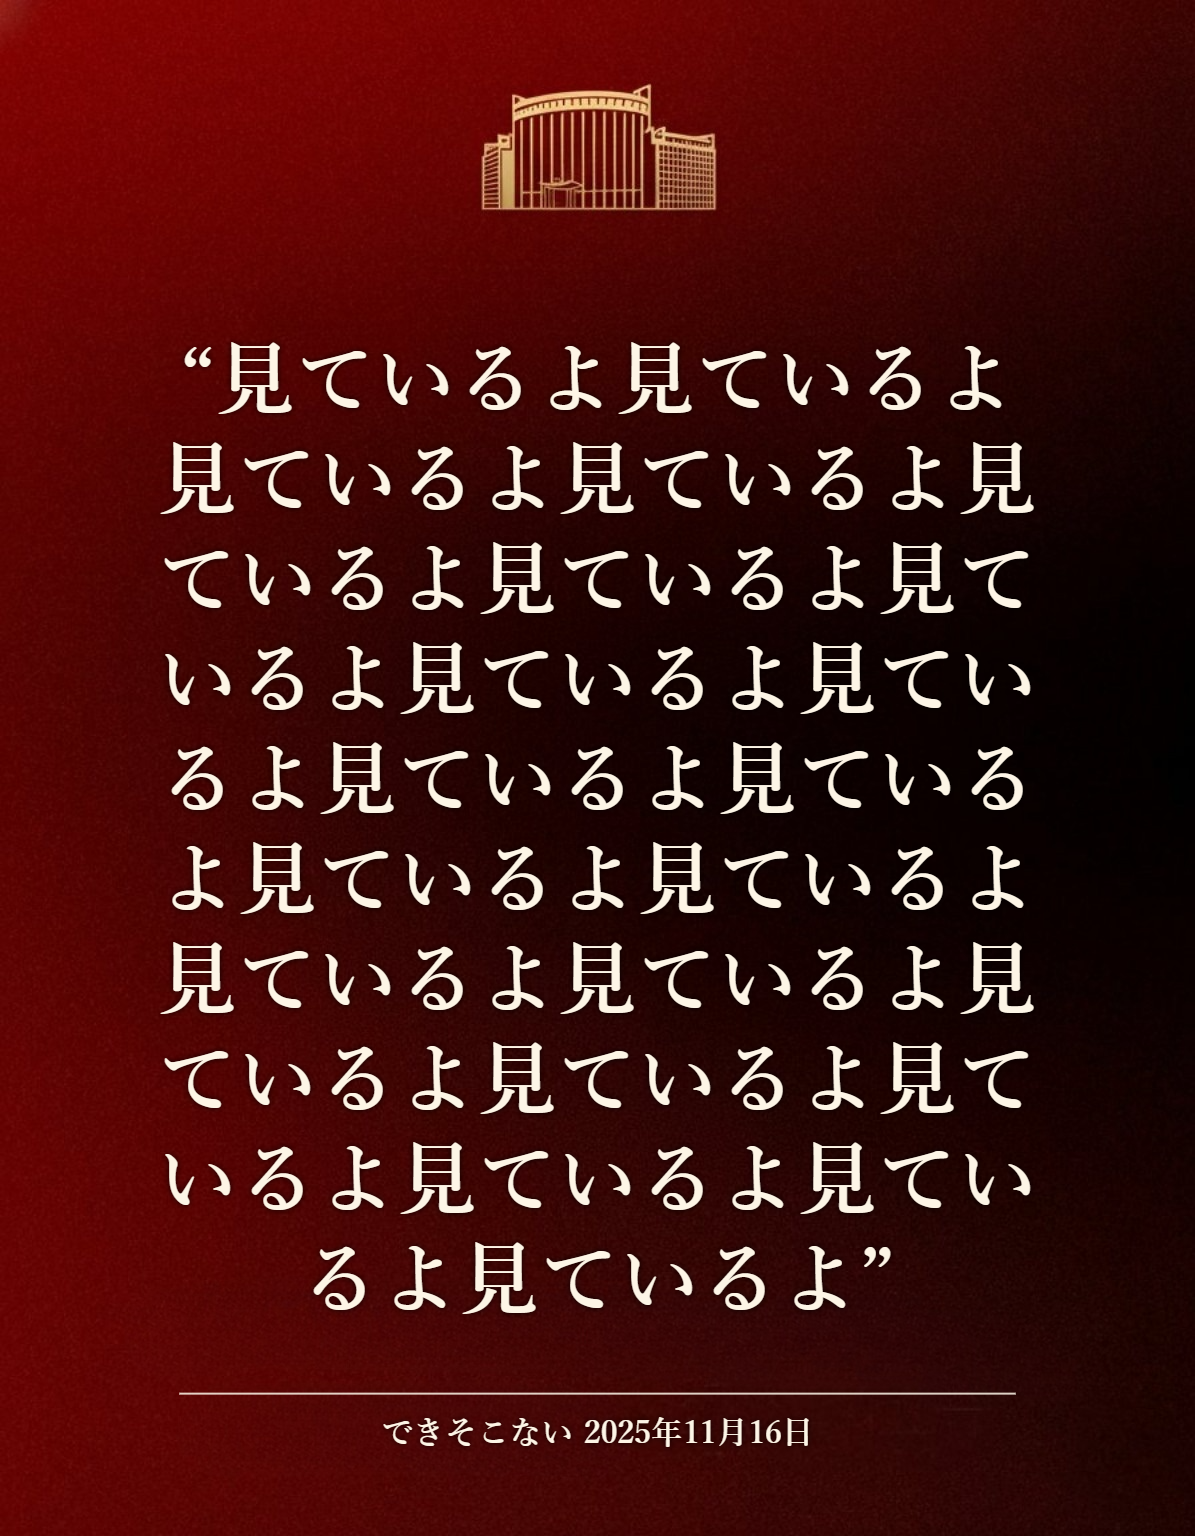 “見ているよ見ているよ
見ているよ見ているよ見
ているよ見ているよ見て
いるよ見ているよ見てい
るよ見ているよ見ている
よ見ているよ見ているよ
見ているよ見ているよ見
ているよ見ているよ見て
いるよ見ているよ見てい
るよ見ているよ”
できそこない 2025年11月16日